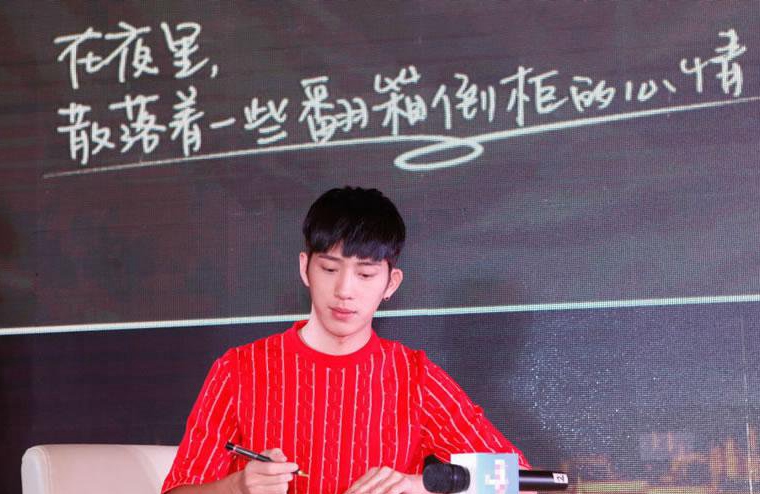 在夜里，
散落着一些翻箱倒柜的心情